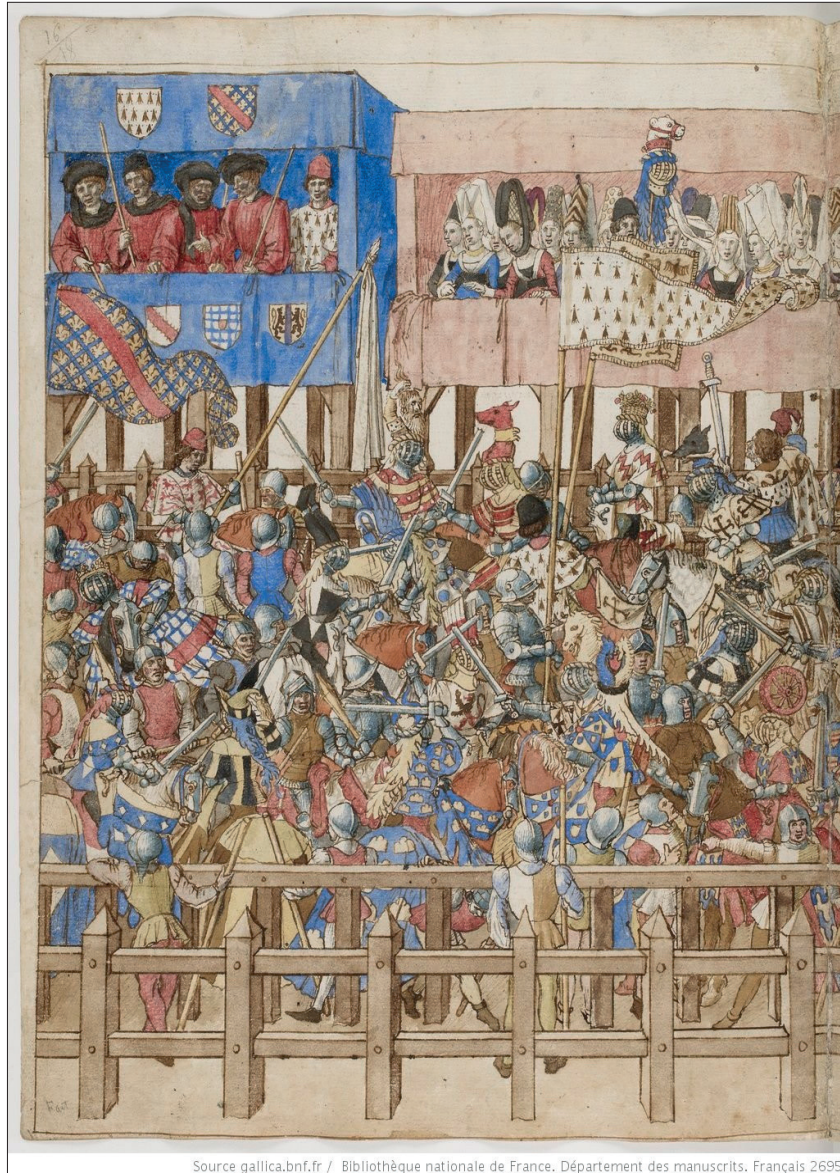 Source gallica.bnf.fr / Bibliothèque nationale de France. Département des manuscrits. Français 2695